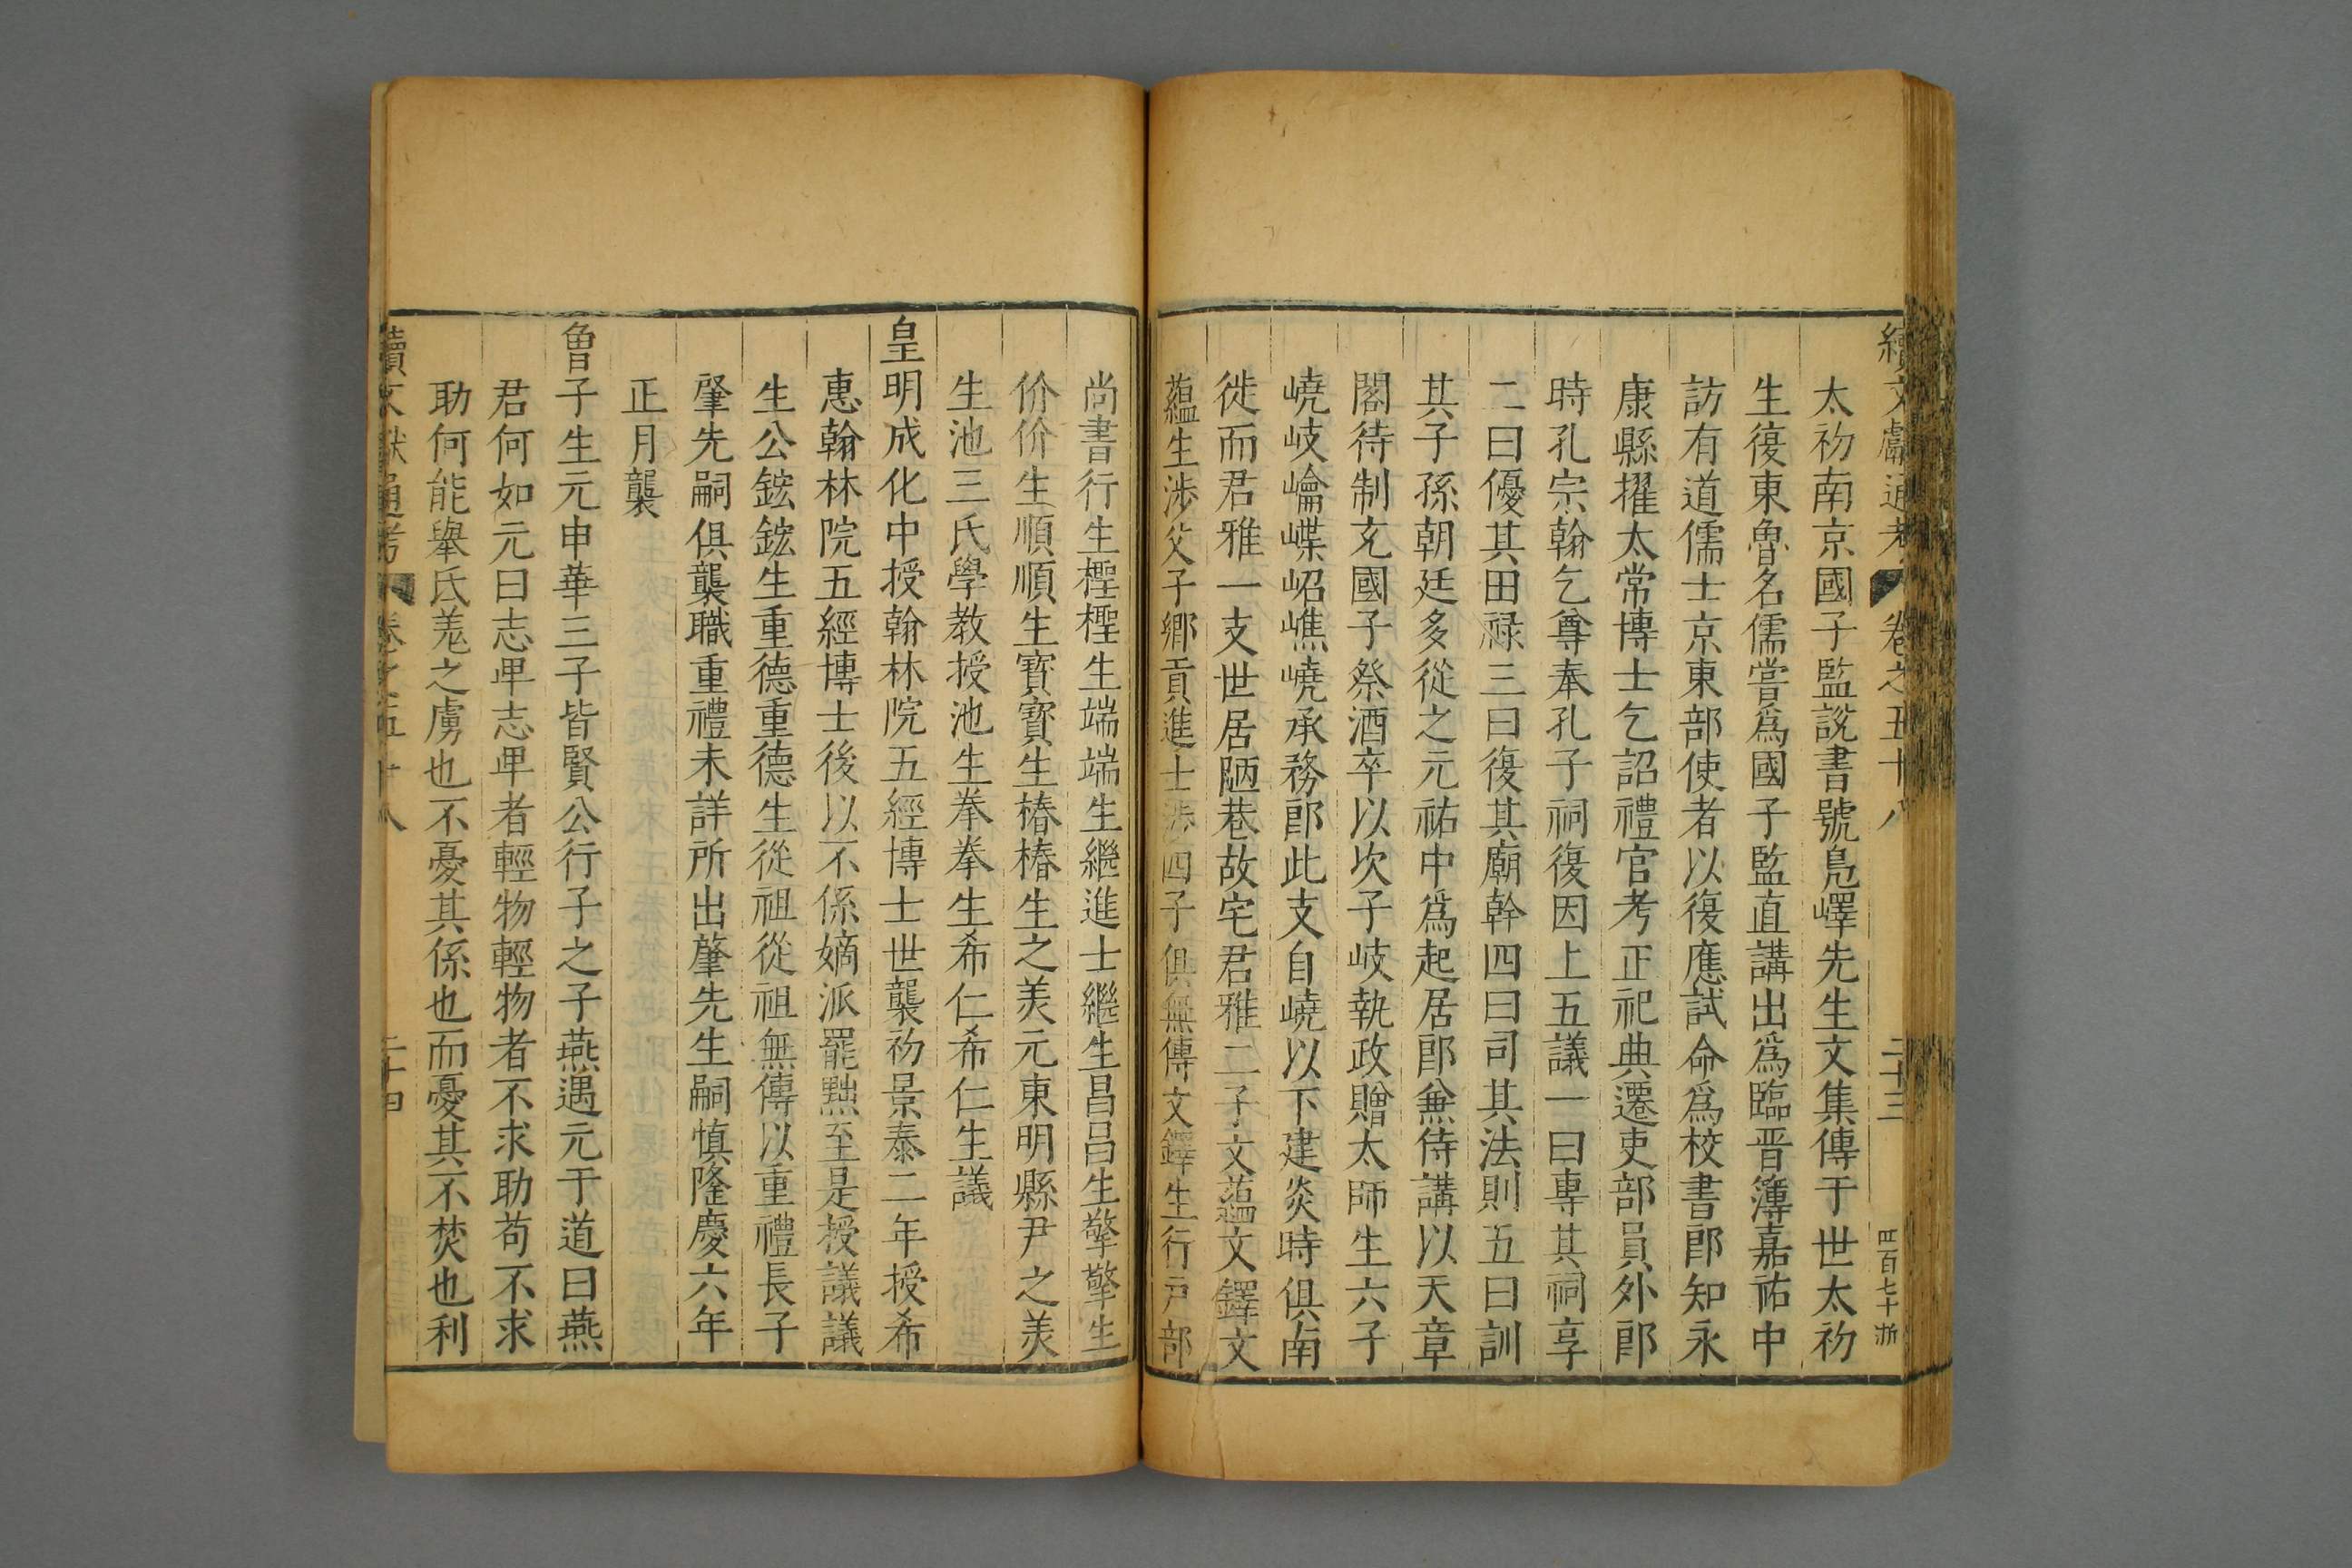 續文獻通考 卷之五十八 二十三 四百七十 浙
太初南京國子監說書號鳧嶧先生文集傳于世太初
生復東魯名儒嘗爲國子監直講出爲臨晋簿嘉祐中
訪有道儒士京東部使者以復應試命爲校書郎知永
康縣擢太常博士乞詔禮官考正祀典遷吏部員外郎
時孔宗翰乞尊奉孔子祠復因上五議一曰專其祠享
二曰優其田祿三曰復其廟幹四曰司其法則五曰訓
其子孫朝廷多從之元祐中爲起居郎兼侍講以天章
閣待制充國子祭酒卒以次子岐執政贈太師生六子
嶢岐崙嵲岹嶕嶢承務郎此支自嶢以下建炎時俱南
徙而君雅一支世居陋巷故宅君雅二子文蘊文鐸文
蘊生涉父子鄉貢進士涉四子俱無傳文鐸生行戸部
尚書行生檉檉生端端生繼進士繼生昌昌生擎擎生
价价生順順生寶寶生椿椿生之美元東明縣尹之美
生池三氏學教授池生拳拳生希仁希仁生議
皇明成化中授翰林院五經博士世襲初景泰二年授希
惠翰林院五經博士後以不係嫡派罷黜至是授議議
生公鋐鋐生重德重德生從祖從祖無傳以重禮長子
肇先嗣俱襲職重禮未詳所出肇先生嗣慎隆慶六年
正月襲
魯子生元申華三子皆賢公行子之子燕遇元于道曰燕
君何如元曰志卑志卑者輕物輕物者不求助苟不求
助何能舉氐羗之虜也不憂其係也而憂其不焚也利
續文獻通考 卷之五十八 二十四